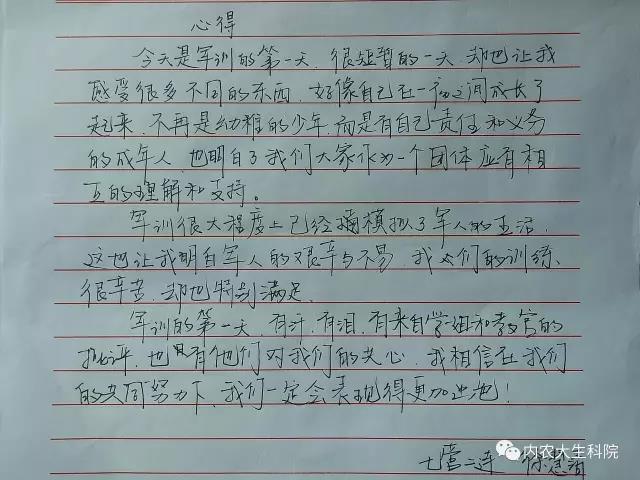 心得
今天是军训的第一天,很短暂的一天,却也让我
感受很多不同的东西,好像自己在一夜之间成长了
起来,不再是幼稚的少年,而是有自己责任和义务
的成年人,也明白了我们大家作为一个团体应有相
互的理解和支持。
军训很大程度上已经模拟了军人的生活,
这也让我明白军人的艰辛与不易,我们的训练、
很辛苦,却也特别满足、
军训的第一天,有汗,有泪,有来自学姐和教官的
批评,也有他们对我们的关心,我相信在我们
的共同努力下,我们一定会表现得更加出色!
七营二连
内农大生科院